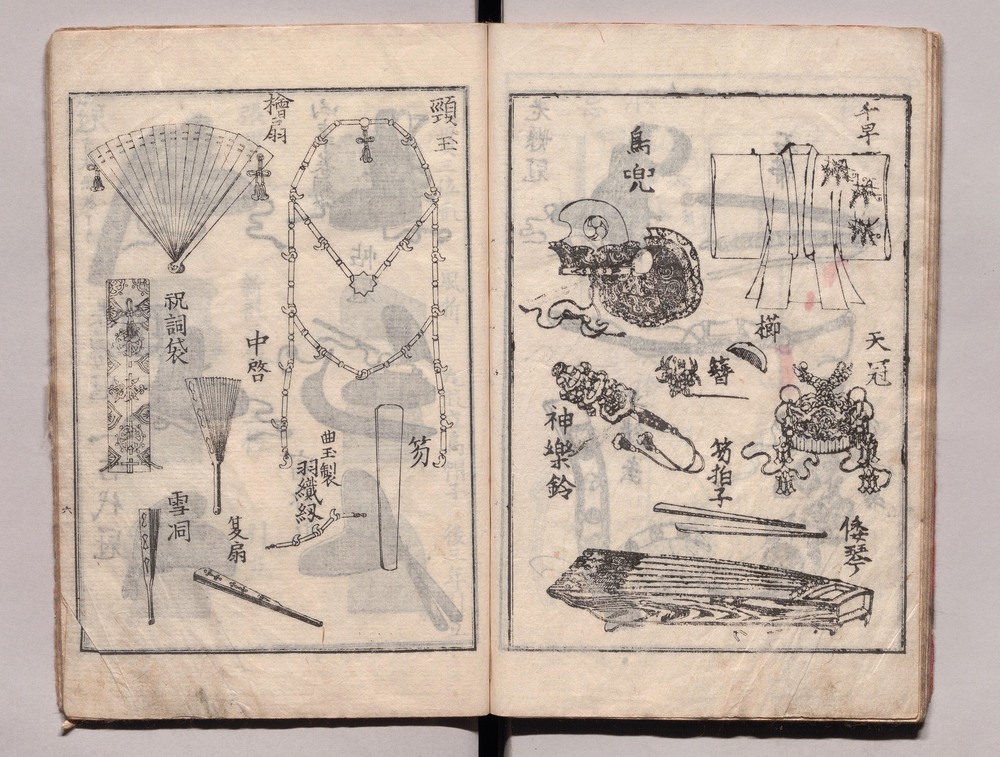 千早
鳥兜
櫛
天冠
簪
神樂鈴
笏拍子
倭琴
頸玉
檜扇
祝詞袋
中啓
笏
曲玉製
羽織紐
雪洞
夏扇
六